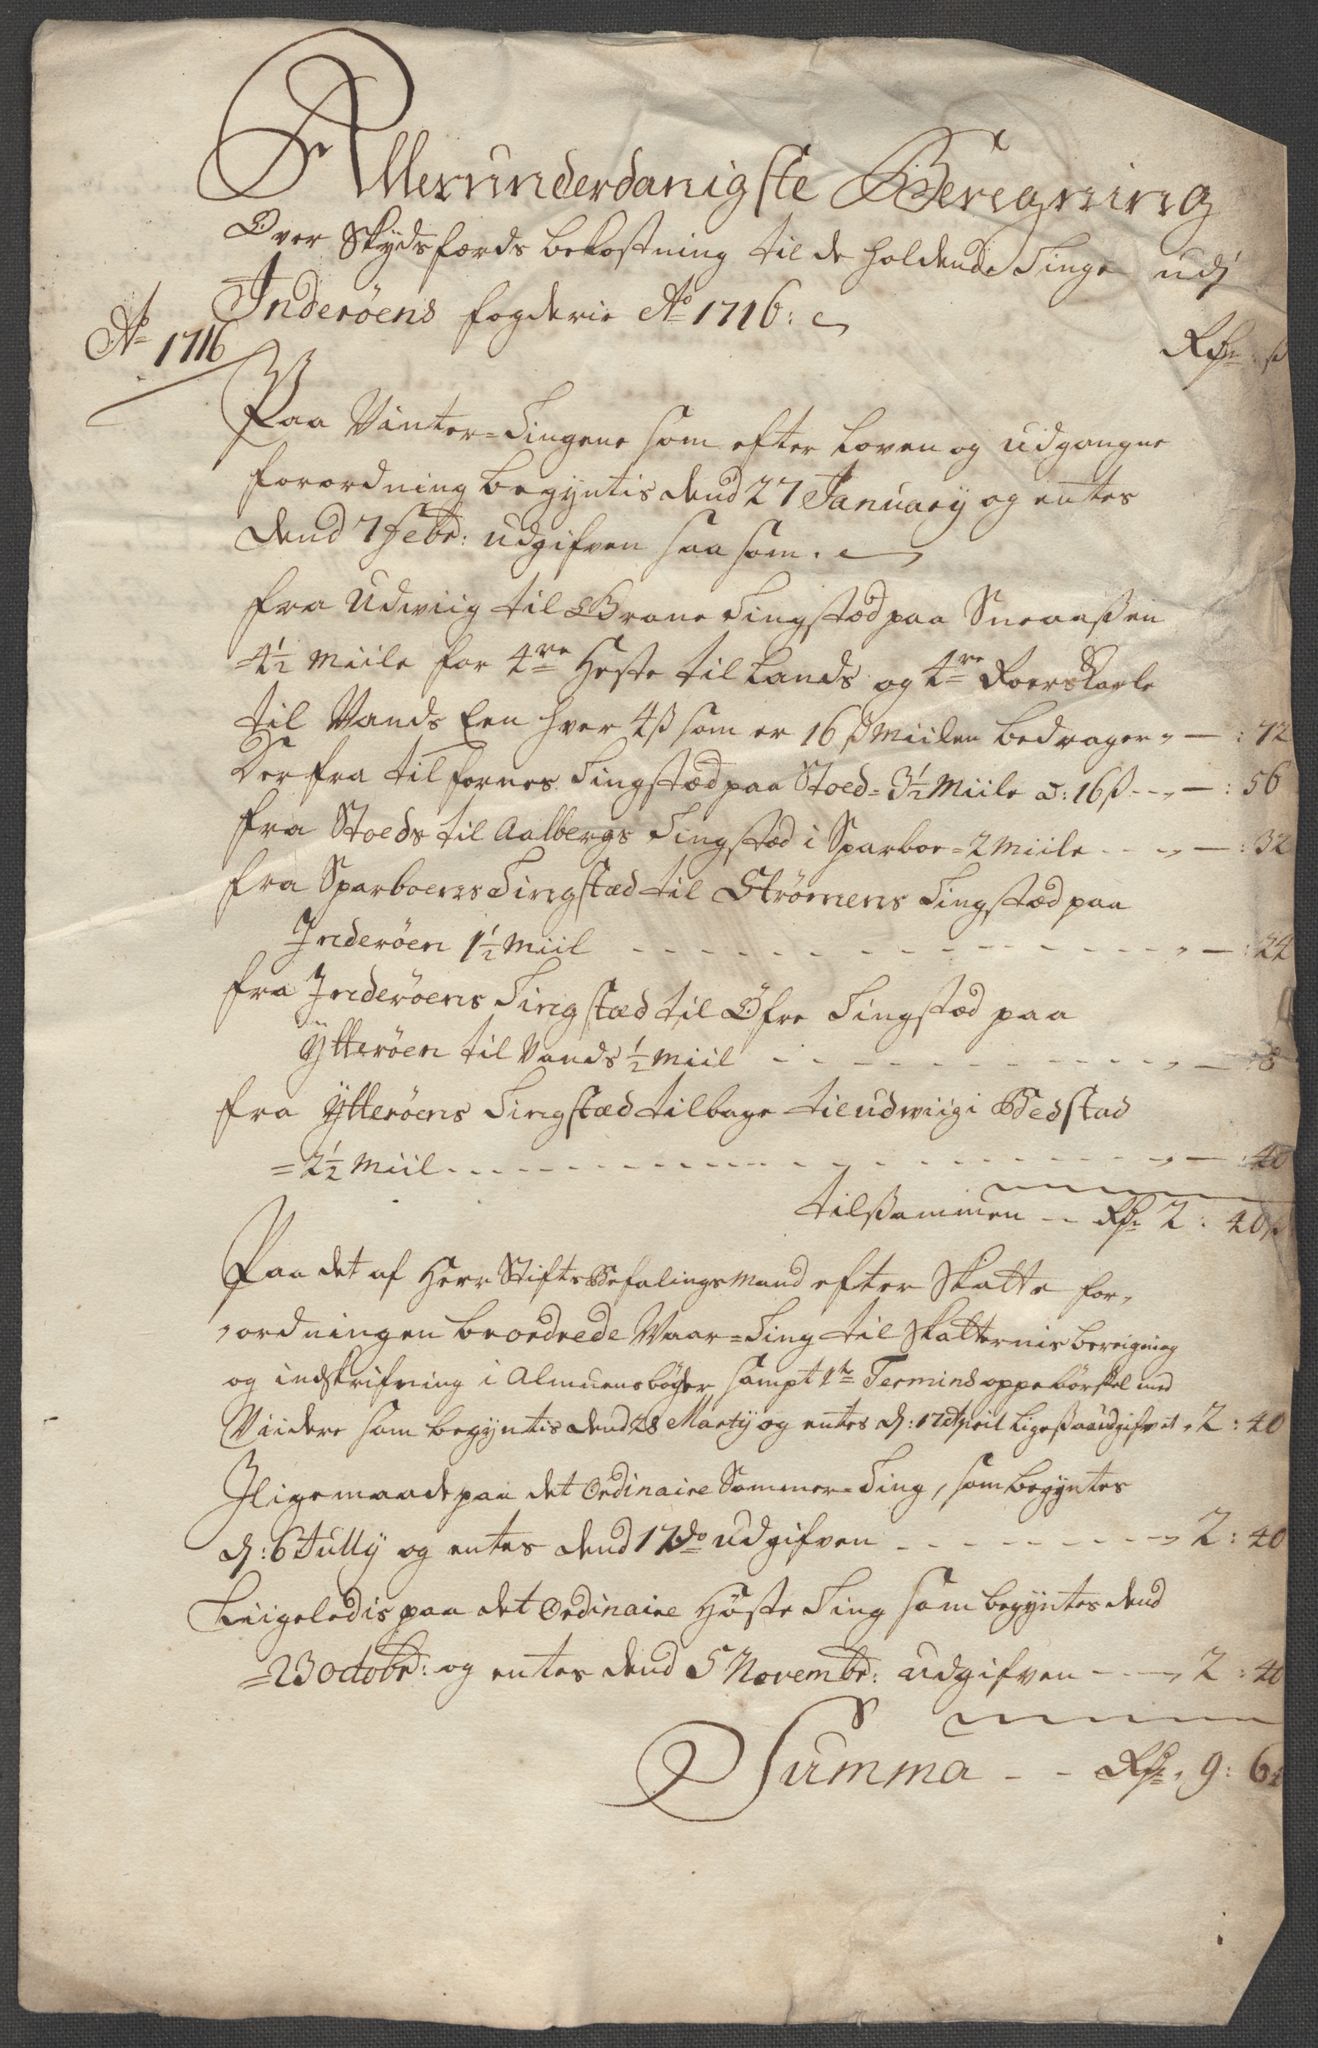 Allerunderdanigste Beregning
Over Skydsfærds bekostning til de holdende Tinge udj
Inderøens fogderie Ao 1716:
Ao 1716
Rdr ß
Paa Vinter=Tingene som efter Loven og udgangne
forordning begyntis dend 27 January og entes
dend 7 Febr: udgifven saa som.
fra Udwiig til Grane Tingstæd paa Sneaaßen
=4½ Miile for 4re Heste til Lands og 4re Roerskarle
til Vands Een hver 4ß som er 16 ß Miilen bedrager - : 72
Der fra til fornes Tingstæd paa Stoed= 3½ Miile a: 16ß - : 56
fra Stoeds til Aalbergs Tingstæd i Sparboe =2 Miile - : 32
fra Sparboens Tingstæd til Strømens Tingstæd paa
Inderøen 1½ Miil - : 24
fra Inderøens Tingstæd til Öfre Tingstæd paa
Ÿtterøen til Vands ½ Miil - : 8
fra Ÿtterøens Tingstæd tilbage til udwiig i Bedstad
=2½ Miil - : 40
tilßammen - Rdr 2 : 40ß
Paa det af Herr Stifts Befalings Mand efter Skatte for-
-ordningen beordrede Vaar=Ting til Skatternis bereigning
og indskrifning i Almuens bøger sampt 1te Termins oppebørsel med
Viidere som begyntis dend 28 Marty og entes d: 17 April ligeßaa udgifvet 2 : 40
Iligemaade paa det Ordinaire Sommer=Ting, som begyntes
d: 6 July og entes dend 17 do udgifven - 2 : 40
Liigeledis paa det Ordinaire Høste Ting som begyntes dend
=23 octobr: og entes dend 5 Novembr: udgifven - 2 : 40
Summa - - Rdr 9 : 64